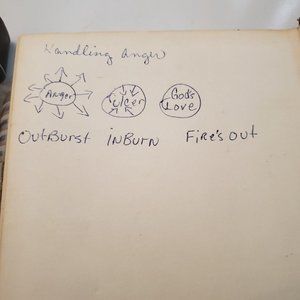 Handling anger
Anger ulcer God's Love
OutBurst InBurn Fire's Out